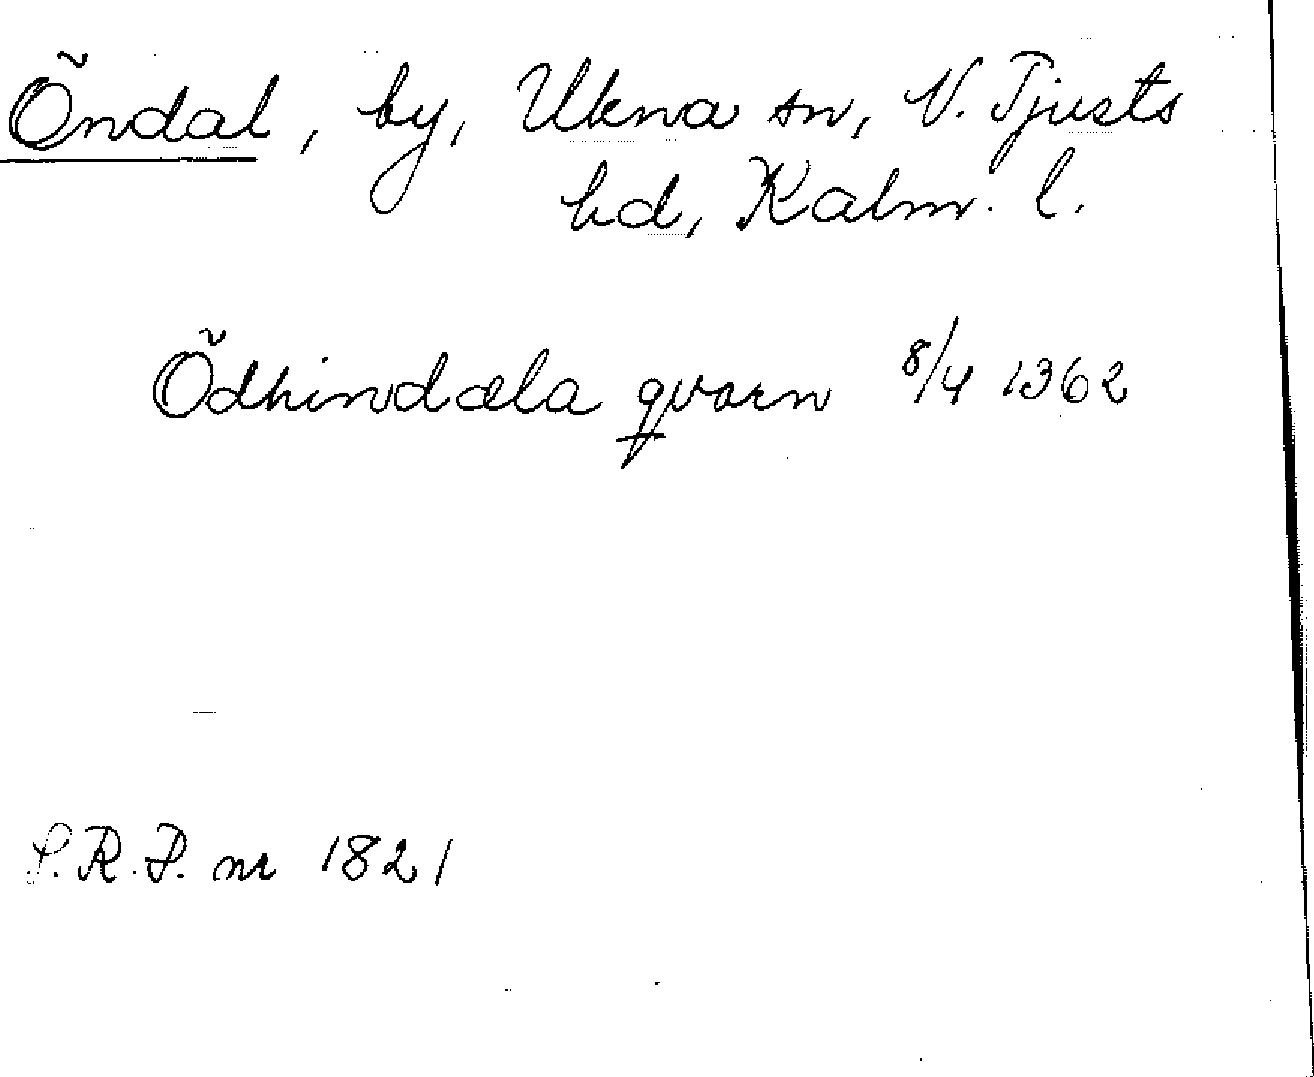 Öndal, by, Ukna sn, N. Tjusts
hd, Kalm. l.
Ödhindæla qvarn 8/4 1362
S.R.P. nr 1821